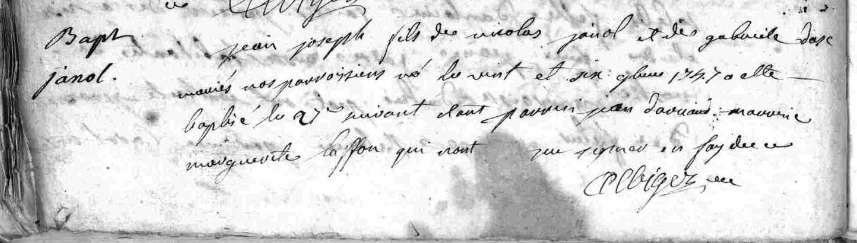 Bapt
janol.
jean joseph fils de nicolas janol et de gabriele
mariés nos parroissiens né le vint et six 9bre 1747 a ette
baptisé le 27e suivant etant parrein jean marreine
marguerite laffon qui n'ont sçu signer en foy de ce